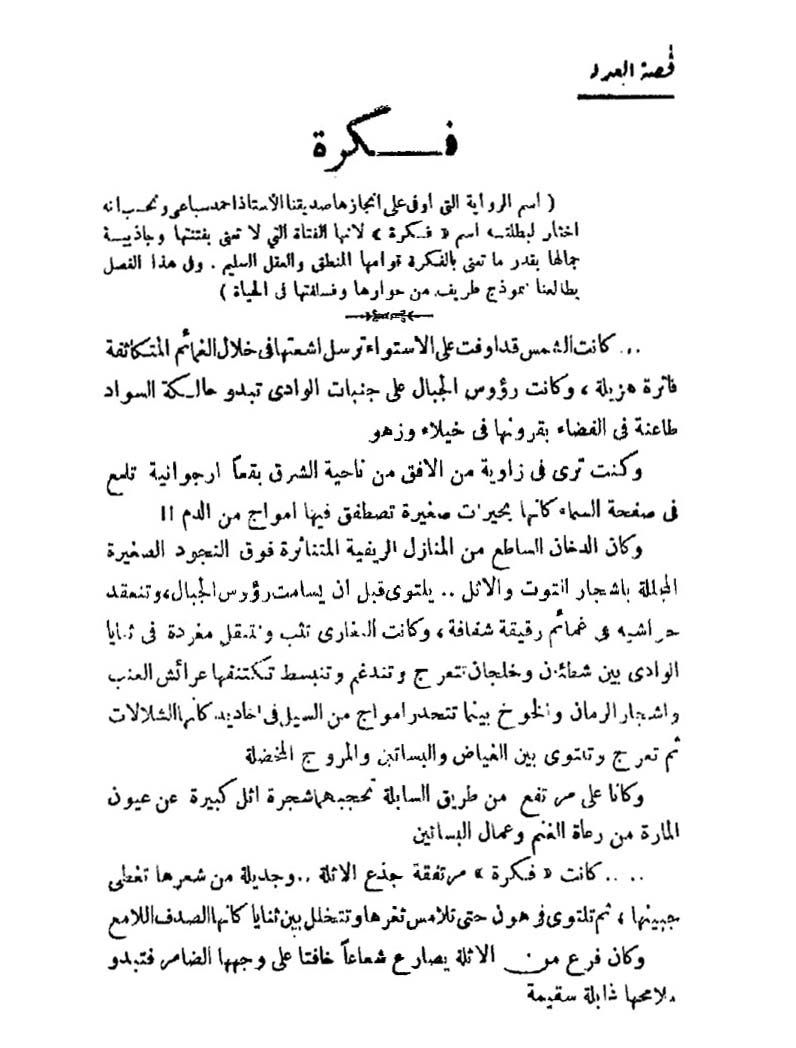 قصة العدد
فكرة
( اسم الرواية التى أوفى على انجازها صديقنا الأستاذ احمد سباعى ونحسب انه
اختار لبطلته اسم « فكرة » لانها الفتاة التي لا تعنى بفتنتها وجاذبيـة
جمالها بقدر ما تعنى بالفكرة قوامها المنطق والعقل السليم . وفى هذا الفصل
يطالعنا نموذج طريف من حوارها وفلسفتها فى الحياة )
... كانت الشمس قد اوفت على الاستواء ترسل اشعتها فى خلال الغمائم المتكاثفة
فاترة هزيلة ، وكانت رؤوس الجبال على جنبات الوادى تبدو حالـكة السواد
طاعنة فى الفضاء بقرونها فى خيلاء وزهو
وكنت ترى فى زاوية من الافق من ناحية الشرق بقعاً ارجوانية تلمع
فى صفحة السماء كانها بحيرات صغيرة تصطفق فيها امواج من الدم !!
وكان الدخان الساطع من المنازل الريفية المتناثرة فوق النجود الصغيرة
المجللة باشجار التوت والاثل .. يلتوى قبل ان يسامت رؤوس الجبال ، وتنعقد
حواشيه فى غمائم رقيقة شفافة ، وكانت القمارى تثب وتتنقل مغردة فى ثنايا
الوادى بين شطئان وخلجان تتعرج وتندغم وتنبسط تكتنفها عرائش العنب
واشجار الرمان والخوخ بينما تتحدر امواج من السيل فى اخاديد كانها الشلالات
ثم تعرج وتلتوى بين الغياض والبساتين والمروج المخضلة
وكانا على مرتفع من طريق السابلة تحجبهما شجرة اثل كبيرة عن عيون
المارة من رعاة الغنم وعمال البساتين
.... كانت « فكرة » مرتفقة جذع الاثلة .. وجديلة من شعرها تغطى
جبينها ، ثم تلتوى فى هون حتى تلامس ثغرها وتتخلل بين ثنايا كانها الصدف اللامع
وكان فرع من الاثلة يصارع شعاعاً خافتا على وجهها الضامر فتبدو
ملامحها ذابلة سقيمة